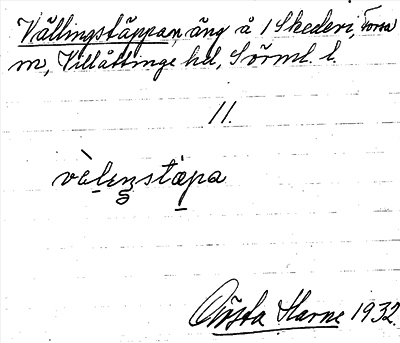 Vällingstäppan, äng å 1 Skederi, Torsa
m, Villåttinge hd, Sörml. l.
11.
vàlenstäpa
Gösta Harne 1932.